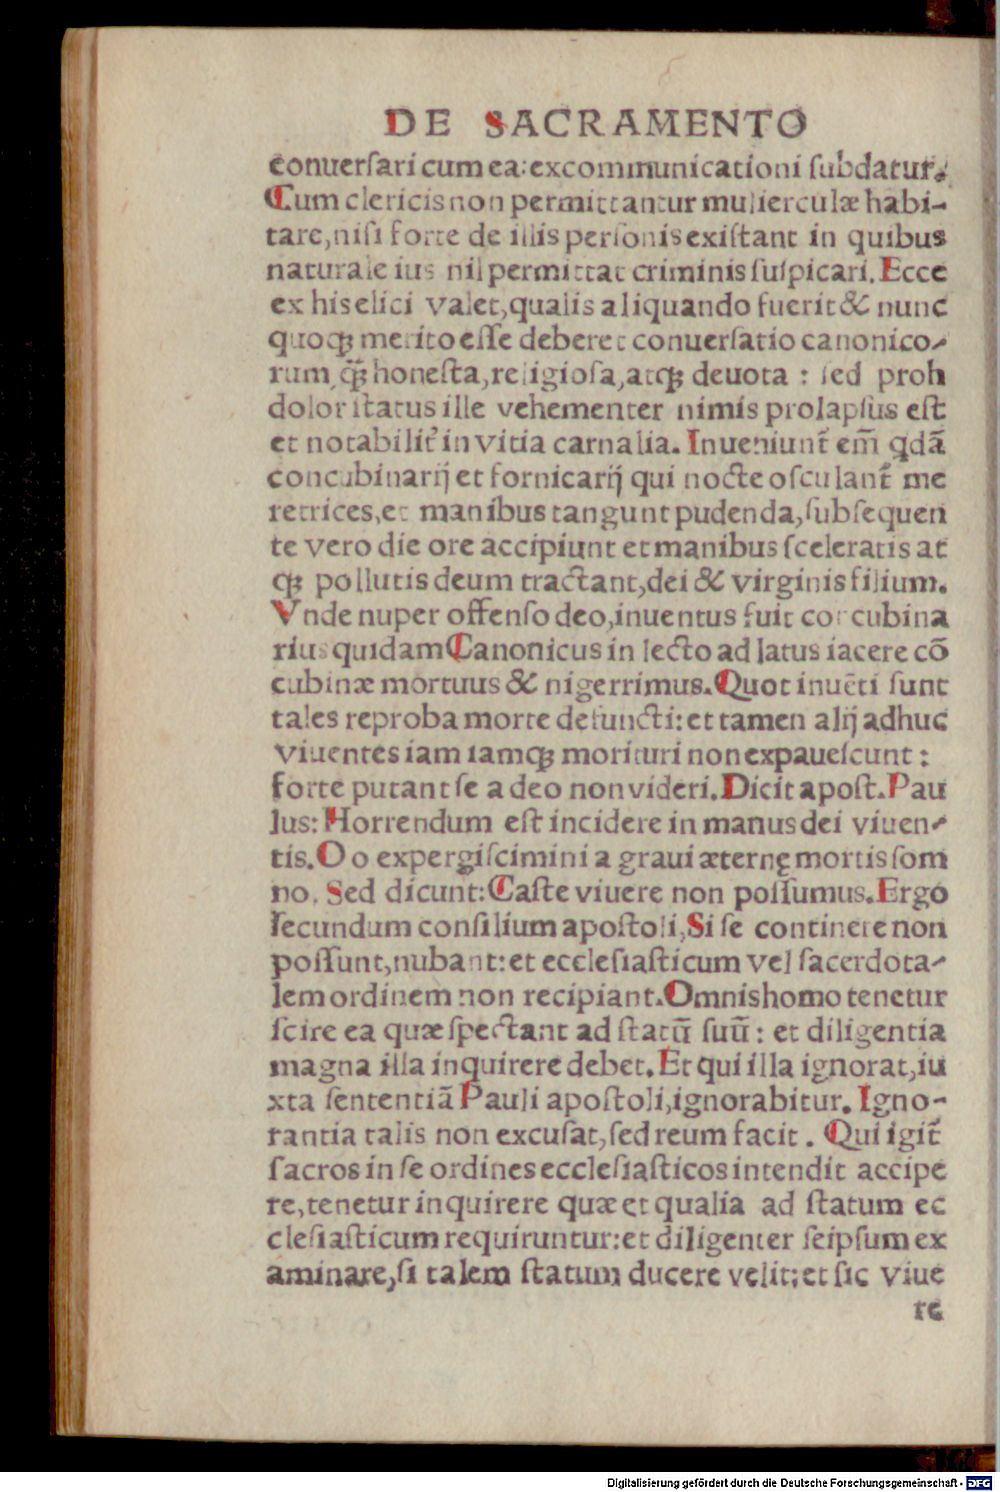 DE SACRAMENTO
conuerſari cum ea: excommunicationi ſubdatur.
Cum clericis non permittantur mulierculæ habi-
tare, niſi forte de illis perſonis exiſtant in quibus
naturale ius nil permittat criminis ſuſpicari. Ecce
ex his elici valet, qualis aliquando fuerit & nunc
quoqꝫ merito eſſe deberet conuerſatio canonico-
rum, q̃ꝫ honeſta, religioſa, atqꝫ deuota : ſed proh
dolor ſtatus ille vehementer nimis prolapſus eſt
et notabilit᷑ in vitia carnalia. Inueniunt᷑ em̃ qdã
concubinarij et fornicarij qui nocte oſculant᷑ me
retrices, et manibus tangunt pudenda, ſubſequen
te vero die ore accipiunt et manibus ſceleratis at
qꝫ pollutis deum tractant, dei & virginis filium.
Vnde nuper offenſo deo, inuentus fuit concubina
rius quidam Canonicus in lecto ad latus iacere cõ
cubinæ mortuus & nigerrimus. Quot inuẽti ſunt
tales reproba morte defuncti: et tamen alij adhuc
viuentes iam iamqꝫ morituri non expaueſcunt :
forte putant ſe a deo non videri. Dicit apoſt. Pau
lus: Horrendum eſt incidere in manus dei viuen-
tis. O o expergiſcimini a graui æternę mortis ſom
no. Sed dicunt: Caſte viuere non poſſumus. Ergo
ſecundum conſilium apoſtoli, Si ſe continere non
poſſunt, nubant: et eccleſiaſticum vel ſacerdota-
lem ordinem non recipiant. Omnis homo tenetur
ſcire ea quæ ſpectant ad ſtatũ ſuũ : et diligentia
magna illa inquirere debet. Et qui illa ignorat, iu
xta ſententiã Pauli apoſtoli, ignorabitur. Igno-
rantia talis non excuſat, ſed reum facit . Qui igit᷑
ſacros in ſe ordines eccleſiaſticos intendit accipe
re, tenetur inquirere quæ et qualia ad ſtatum ec
cleſiaſticum requiruntur: et diligenter ſeipſum ex
aminare, ſi talem ſtatum ducere velit: et ſic viue
re
Digitalisierung gefördert durch die Deutsche Forschungsgemeinschaft - DFG